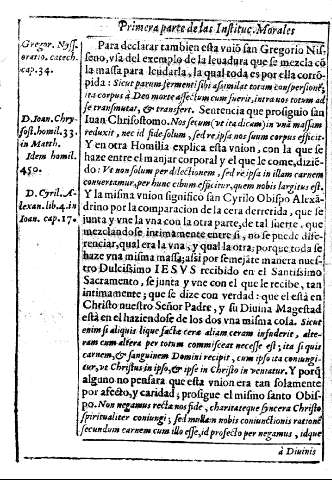 Primera parte de las Instituc. Morales
Gregor. Nyss.
oratio. catech.
cap. 34.
D. Ioan. Chry
sost. homil. 33.
in Matth.
Idem homil.
450.
D. Cyril. A-
lexan. lib. 4. in
Ioan. cap. 17.
Para declarar tambien esta vniõ san Gregorio Nis-
seno, vsa del exemplo de la leuadura que se mezcla cõ
la massa para leudarla, la qual toda es por ella corrõ-
pida: Sicut parum fermenti sibi assimilat totam conspersionẽ;
ita corpus à Deo morte affectum cum fuerit, intra nos totum ad
se transmutat, & transfert. Sentencia que prosiguio san
Iuan Chrisostomo. Nos secum (vt ita dicam) in vnã massam
reduxit, nec id fide solum, sed re ipsa nos suum corpus efficit.
Y en otra Homilia explica esta vnion, con la que se
haze entre el manjar corporal y el que le come, diziẽ-
do: Vt non solum per dilectionem, sed re ipsa in illam carnem
conuertamur, per hunc cibum efficitur, quem nobis largitus est.
Y la misma vnion significò san Cyrilo Obispo Alexã-
drino por la comparacion de la cera derretida, que se
junta y vne la vna con la otra parte, de tal suerte, que
mezclandose intimamente entre si, no se puede dife-
renciar, qual era la vna, y qual la otra; porque toda se
haze vna misma massa; assi por semejãte manera nues-
tro Dulcissimo IESVS recibido en el Santissimo
Sacramento, se junta y vne con el que le recibe, tan
intimamente; que se dize con verdad: que el està en
Christo nuestro Señor Padre, y su Diuina Magestad
està en el haziendose de los dos vna misma cosa. Sicut
enim si aliquis liquefactæ ceræ aliam ceram infuderit, alte-
ram cum altera per totum commisceat necesse est; ita si quis
carnem, & sanguinem Domini recipit, cum ipso ita coniungi-
tur, vt Christus in ipso, & ipse in Christo inueniatur. Y porq̃
alguno no pensara que esta vnion era tan solamente
por afecto, y caridad; prosigue el mismo santo Obis-
po. Non negamus recta nos fide, charitateque syncera Christo
spiritualiter coniungi; sed nullam nobis coniunctionis rationẽ
secundum carnem cum illo esse, id profecto per negamus, idque
à Diuinis